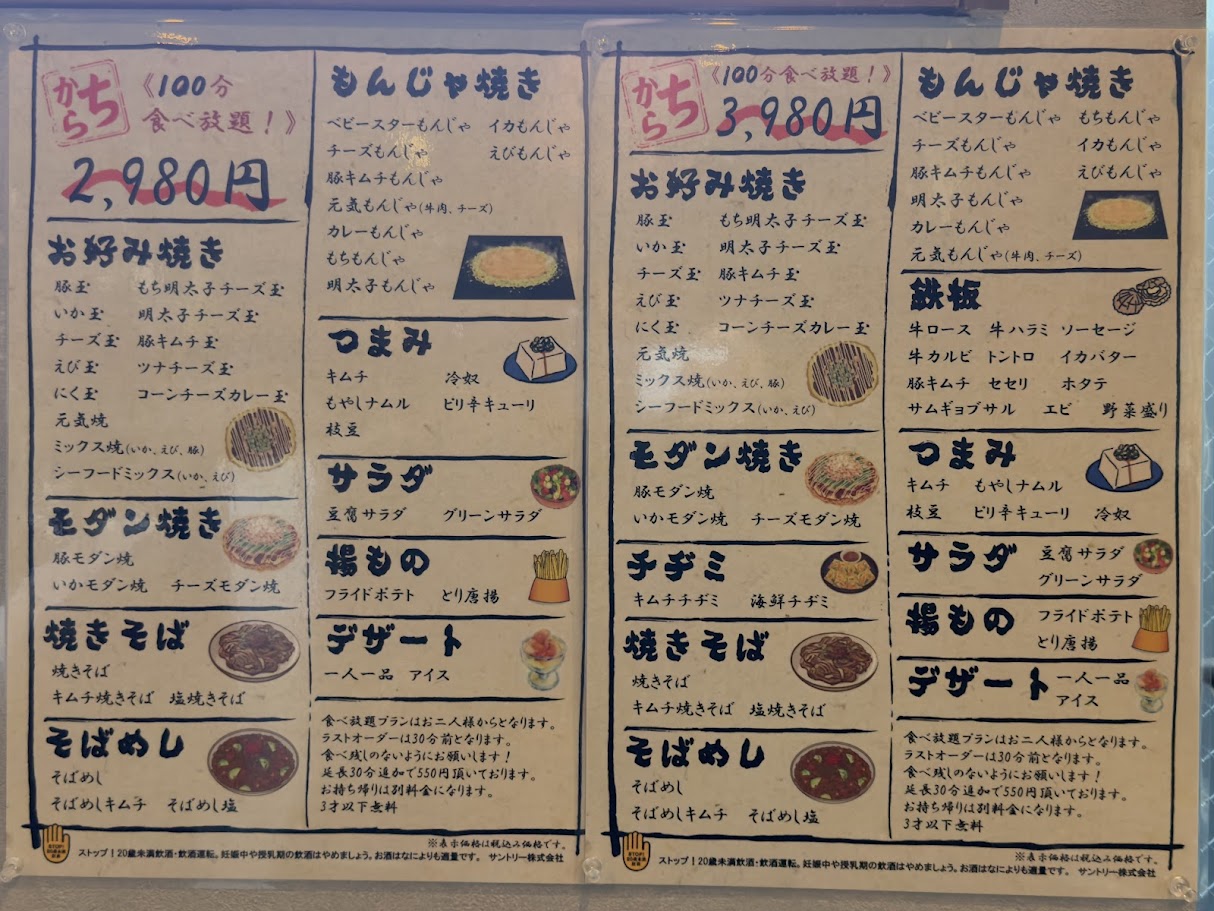 ちから
《100分
食べ放題!》
2,980円
お好み焼き
豚玉 もち明太子チーズ玉
いか玉 明太子チーズ玉
チーズ玉 豚キムチ玉
えび玉 ツナチーズ玉
にく玉 コーンチーズカレー玉
元気焼
ミックス焼(いか、えび、豚)
シーフードミックス(いか、えび)
モダン焼き
豚モダン焼
いかモダン焼 チーズモダン焼
焼きそば
焼きそば
キムチ焼きそば 塩焼きそば
そばめし
そばめし
そばめしキムチ そばめし塩
もんじゃ焼き
ベビースターもんじゃ イカもんじゃ
チーズもんじゃ えびもんじゃ
豚キムチもんじゃ
元気もんじゃ(牛肉、チーズ)
カレーもんじゃ
もちもんじゃ
明太子もんじゃ
つまみ
キムチ 冷奴
もやしナムル ピリ辛キューリ
枝豆
サラダ
豆腐サラダ グリーンサラダ
揚もの
フライドポテト とり唐揚
デザート
一人一品 アイス
食べ放題プランはお二人様からとなります。
ラストオーダーは30分前となります。
食べ残しのないようにお願いします!
延長30分追加で550円頂いております。
お持ち帰りは別料金になります。
3才以下無料
※表示価格は税込み価格です。
STOP!
ストップ!20歳未満飲酒・飲酒運転。妊娠中や授乳期の飲酒はやめましょう。お酒はなによりも適量です。 サントリー株式会社
ちから
《100分食べ放題!》
3,980円
お好み焼き
豚玉 もち明太子チーズ玉
いか玉 明太子チーズ玉
チーズ玉 豚キムチ玉
えび玉 ツナチーズ玉
にく玉 コーンチーズカレー玉
元気焼
ミックス焼(いか、えび、豚)
シーフードミックス(いか、えび)
モダン焼き
豚モダン焼
いかモダン焼 チーズモダン焼
チヂミ
キムチチヂミ 海鮮チヂミ
焼きそば
焼きそば
キムチ焼きそば 塩焼きそば
そばめし
そばめし
そばめしキムチ そばめし塩
もんじゃ焼き
ベビースターもんじゃ もちもんじゃ
チーズもんじゃ イカもんじゃ
豚キムチもんじゃ えびもんじゃ
明太子もんじゃ
カレーもんじゃ
元気もんじゃ(牛肉、チーズ)
鉄板
牛ロース 牛ハラミ ソーセージ
牛カルビ トントロ イカバター
豚キムチ セセリ ホタテ
サムギョプサル エビ 野菜盛り
つまみ
キムチ もやしナムル
枝豆 ピリ辛キューリ 冷奴
サラダ 豆腐サラダ
グリーンサラダ
揚もの フライドポテト
とり唐揚
デザート 一人一品
アイス
食べ放題プランはお二人様からとなります。
ラストオーダーは30分前となります。
食べ残しのないようにお願いします!
延長30分追加で550円頂いております。
お持ち帰りは別料金になります。
3才以下無料
※表示価格は税込み価格です。
STOP!
ストップ!20歳未満飲酒・飲酒運転。妊娠中や授乳期の飲酒はやめましょう。お酒はなによりも適量です。 サントリー株式会社